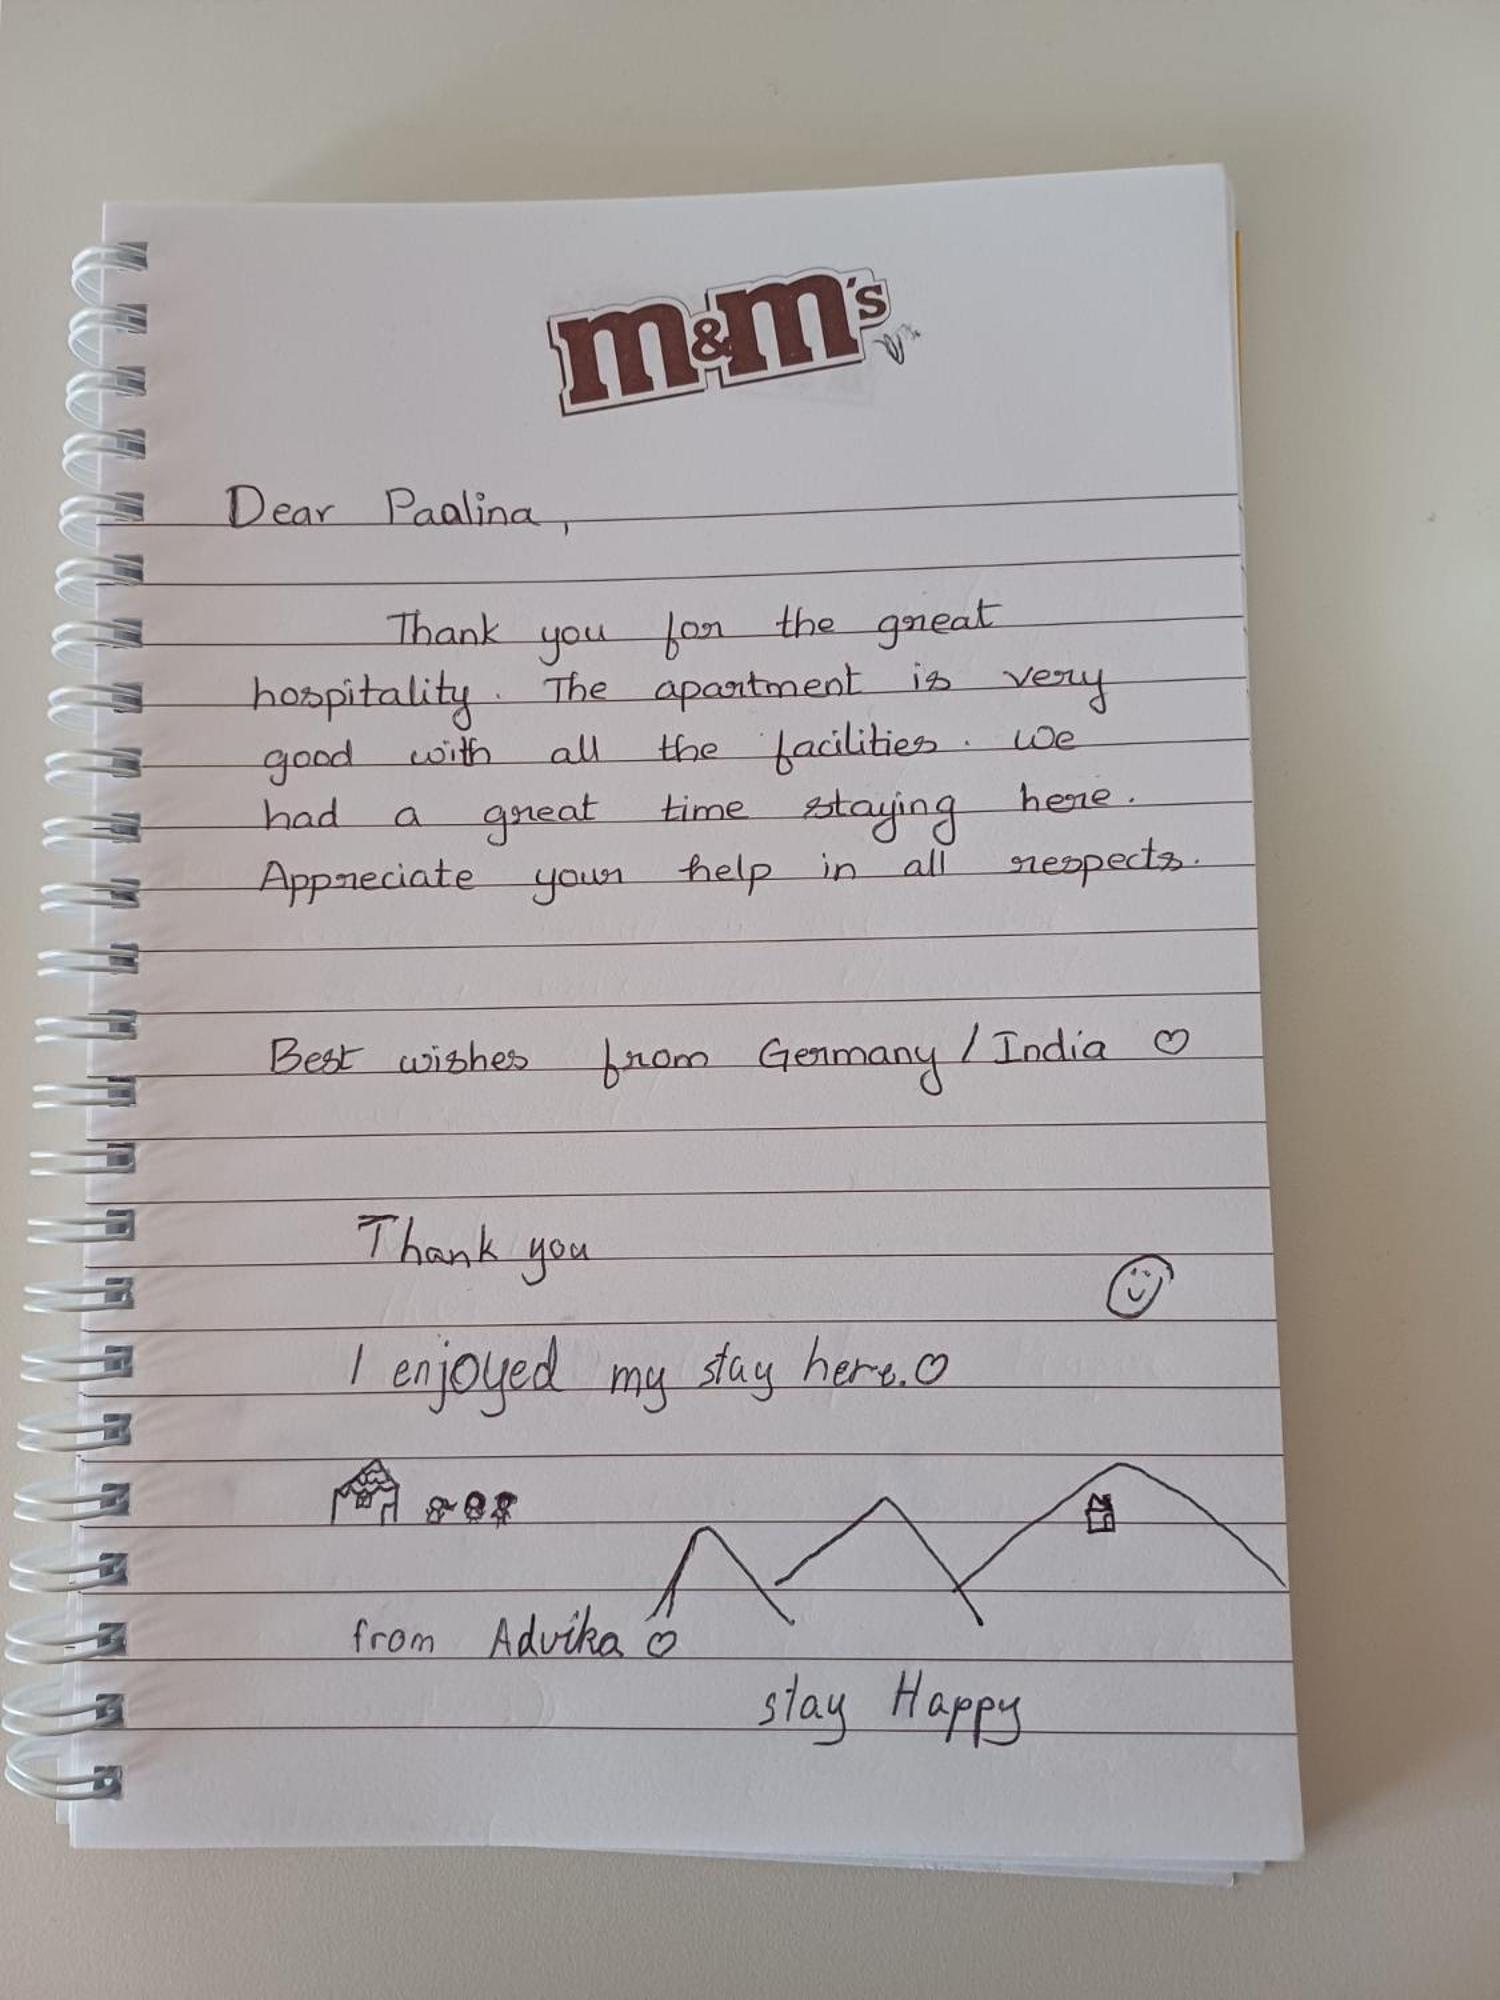 m&m's
Dear Paalina,
Thank you for the great
hospitality. The apartment is very
good with all the facilities. We
had a great time staying here.
Appreciate your help in all respects.
Best wishes from Germany / India ♡
Thank you
I enjoyed my stay here. ♡
from Advika ♡
stay Happy